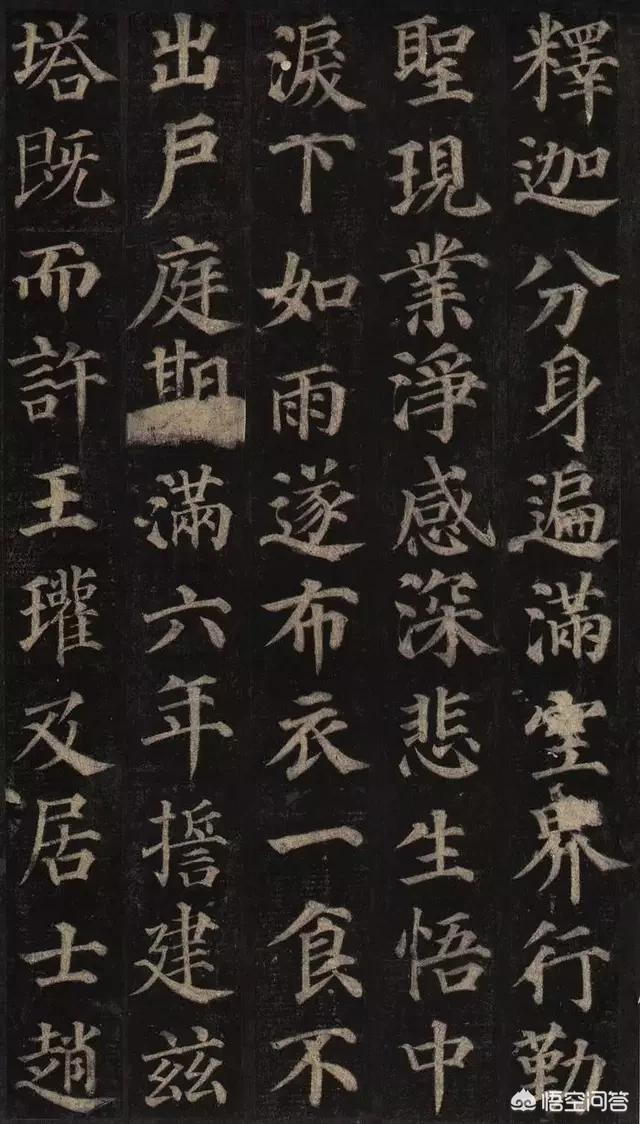 釋迦分身遍滿空界行勤
聖現業淨感深悲生悟中
淚下如雨遂布衣一食不
出戶庭期滿六年誓建茲
塔既而許王瓘及居士趙
悟空问答